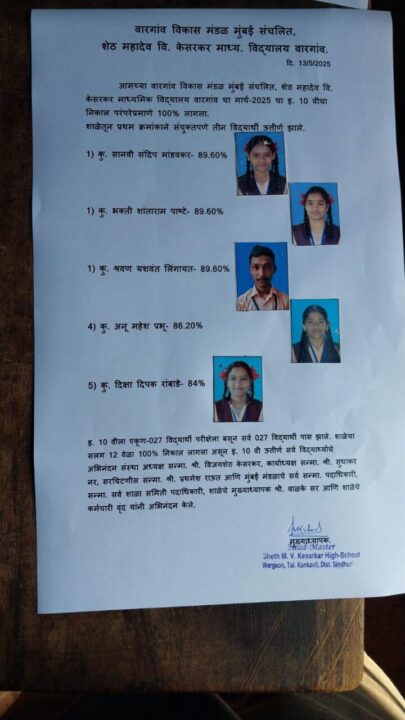 वारगांव विकास मंडळ मुंबई संचलित,
शेठ महादेव वि. केसरकर माध्य. विद्यालय वारगांव.
दि. 13/5/2025
आमच्या वारगांव विकास मंडळ मुंबई संचलित, शेठ महादेव वि.
केसरकर माध्यमिक विद्यालय वारगांव चा मार्च-2025 चा इ. 10 वीचा
निकाल परंपरेप्रमाणे 100% लागला.
शाळेतून प्रथम क्रमांकाने संयुक्तपणे तीन विद्यार्थी उत्तीर्ण झाले.
1) कु. सानवी संदिप मांडवकर- 89.60%
1) कु. भक्ती शांताराम पाष्टे- 89.60%
1) कु. श्रवण यशवंत लिंगायत- 89.60%
4) कु. अनू महेश प्रभू- 86.20%
5) कु. दिक्षा दिपक रांबाडे- 84%
इ. 10 वीला एकूण-027 विद्यार्थी परीक्षेला बसून सर्व 027 विद्यार्थी पास झाले. शाळेचा
सलग 12 वेळा 100% निकाल लागला असून इ. 10 वी उत्तीर्ण सर्व विद्यार्थ्यांचे
अभिनंदन संस्था अध्यक्ष सन्मा. श्री. विजयशेठ केसरकर, कार्याध्यक्ष सन्मा. श्री. सुधाकर
नर, सरचिटणीस सन्मा. श्री. प्रथमेश राऊत आणि मुंबई मंडळाचे सर्व सन्मा. पदाधिकारी,
सन्मा. सर्व शाळा समिती पदाधिकारी, शाळेचे मुख्याध्यापक श्री. वाळके सर आणि शाळेचे
कर्मचारी वृंद यांनी अभिनंदन केले.
मुख्याध्यापक.
Head-Master
Sheth M. V. Kesarkar High-School
Wargaon, Tal. Kankavli, Dist. Sindhu